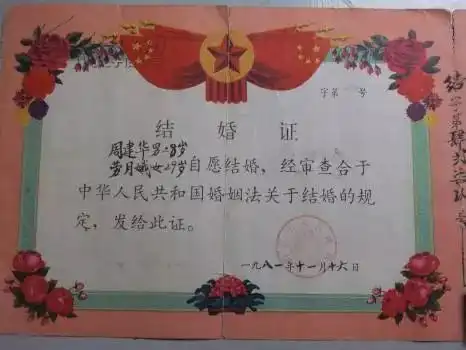 字第 号
结婚证
周建华男二八岁
月娥女二九岁自愿结婚，经审查合于
中华人民共和国婚姻法关于结婚的规
定，发给此证。
一九八一年十一月十六日
结字第
号